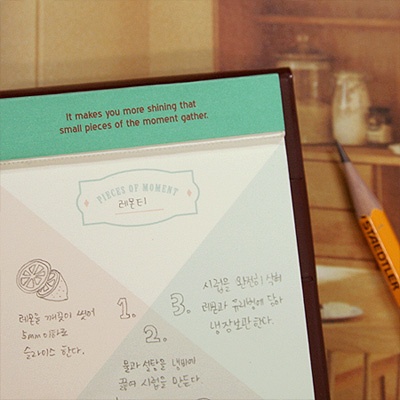 It makes you more shining that
small pieces of the moment gather.
PIECES OF MOMENT
레몬티
1.
레몬을 깨끗이 씻어
5mm 두께로
슬라이스 한다.
2.
물과 설탕을 냄비에
끓여 시럽을 만든다.
3.
시럽을 완전히 식혀
레몬과 유리병에 담아
냉장보관한다.
STAEDTLER